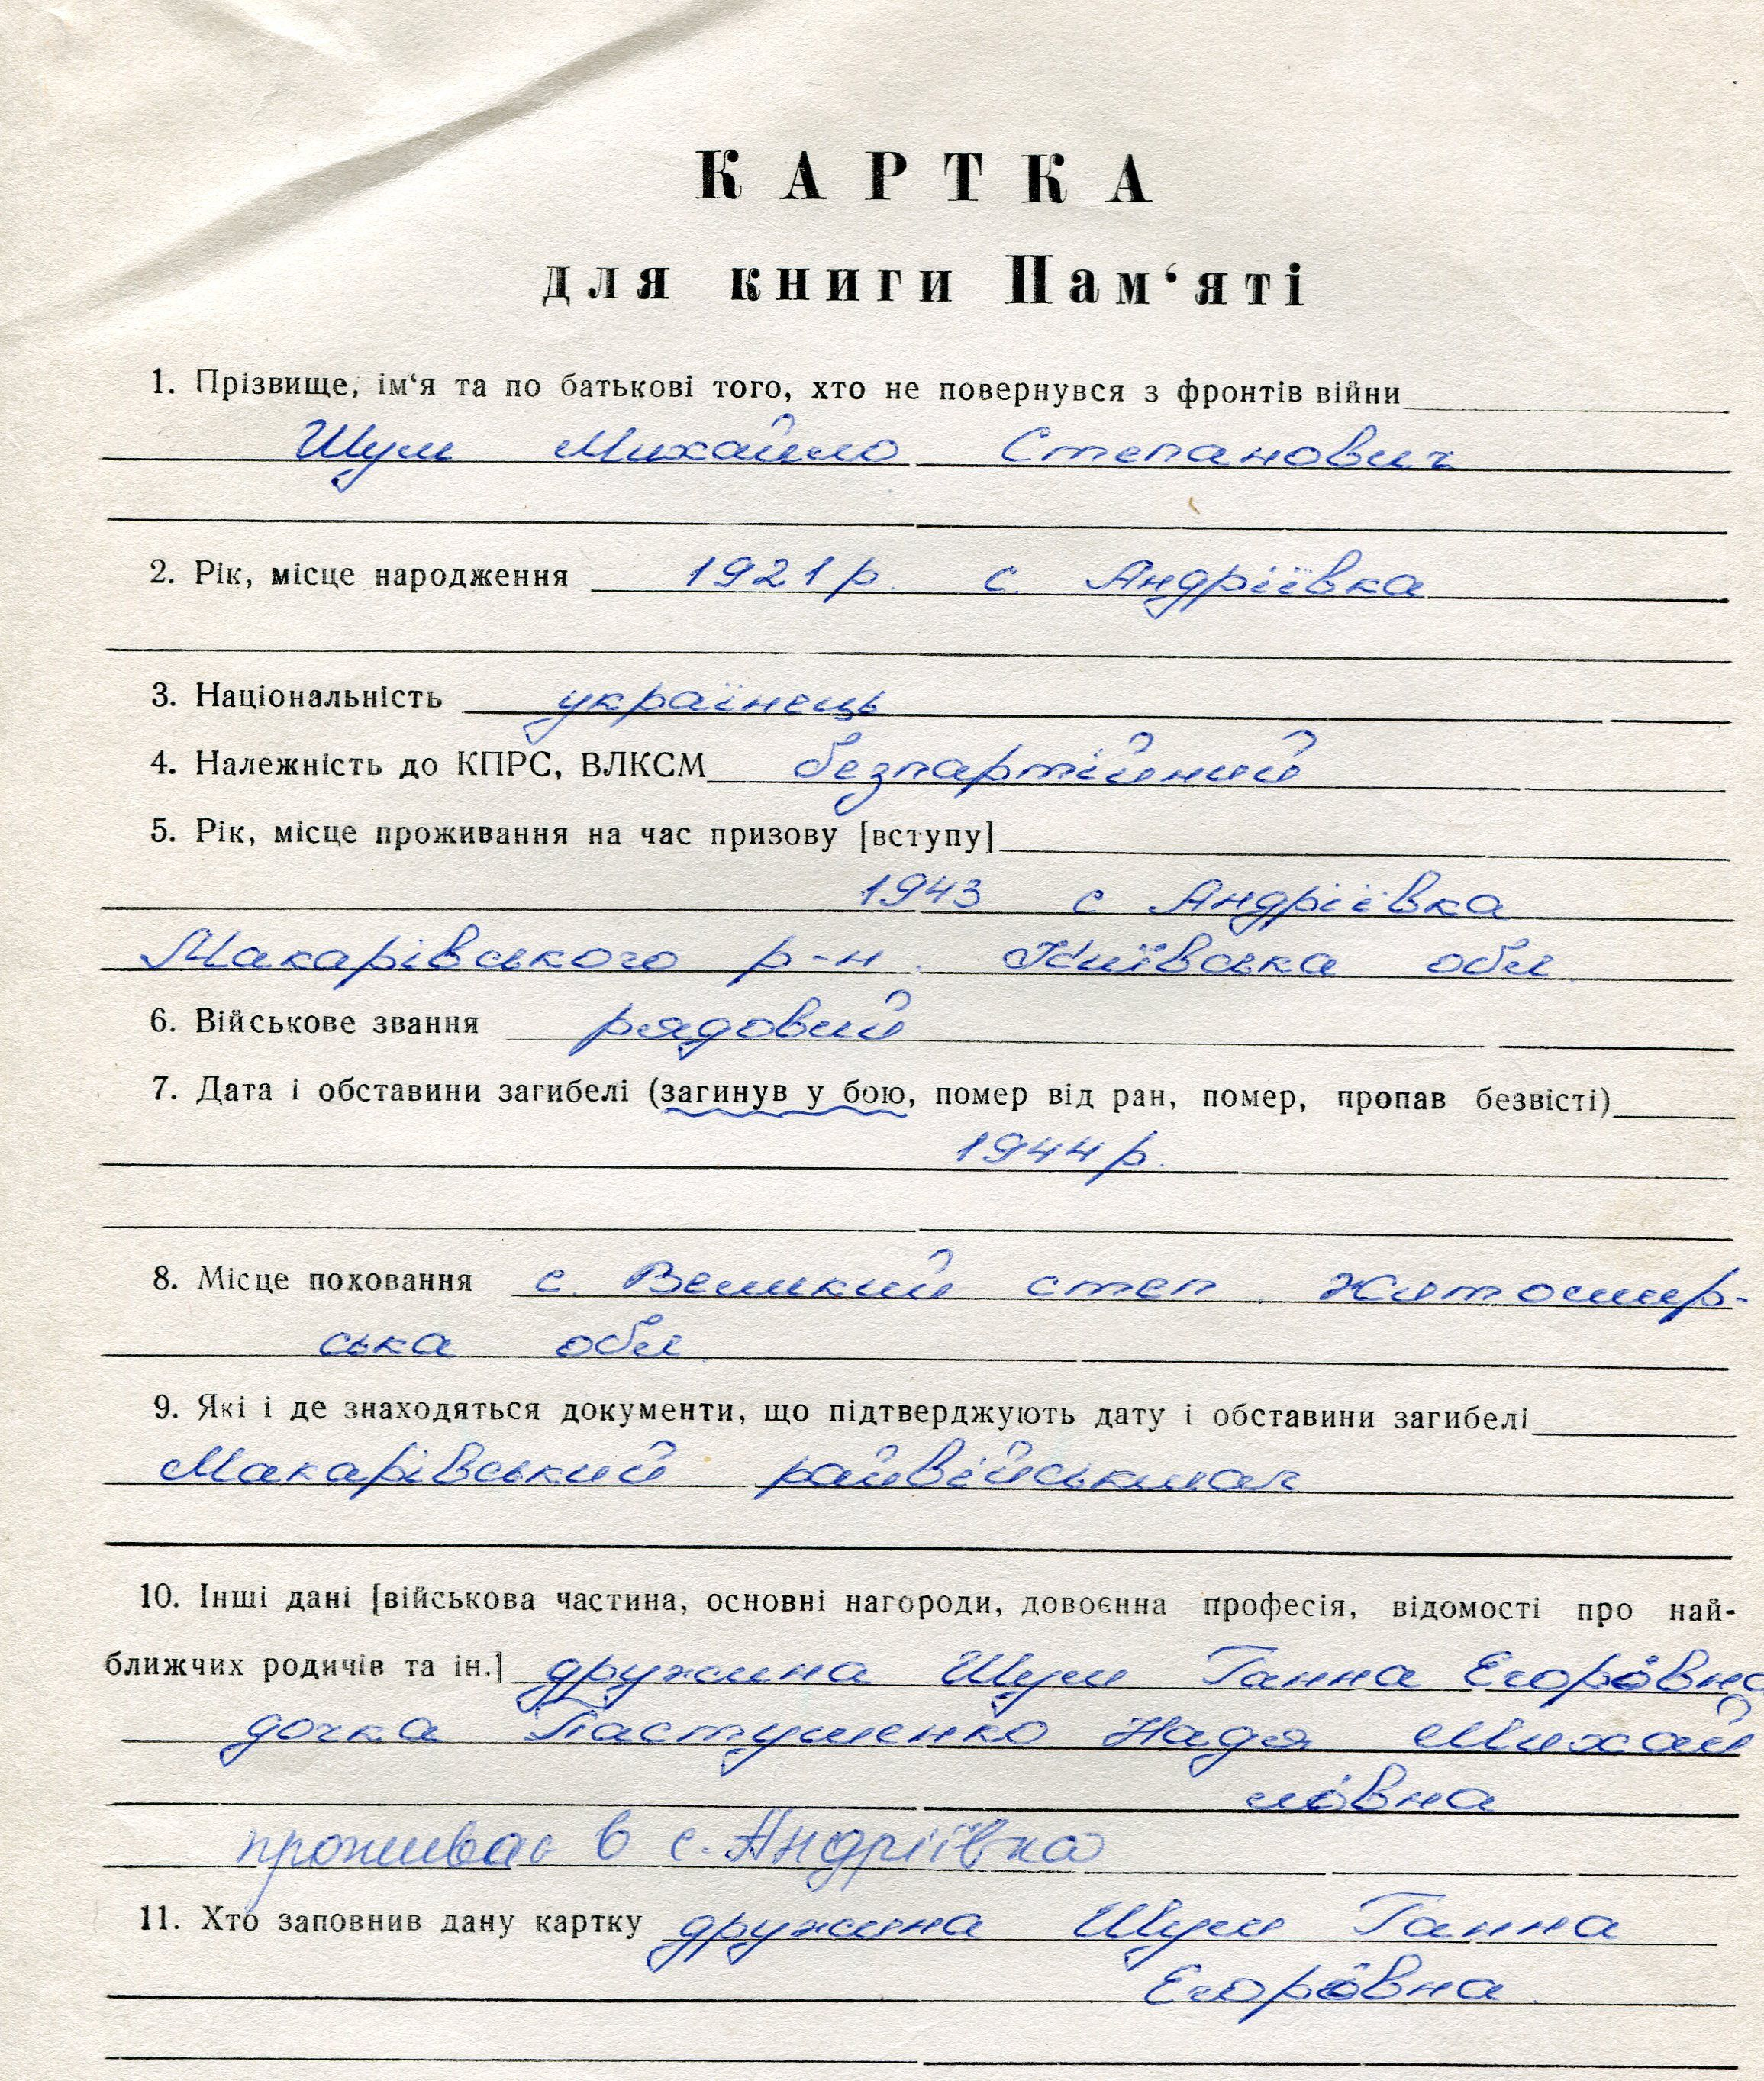 КАРТКА
для книги Пам‘яті
1. Прізвище, ім‘я та по батькові того, хто не повернувся з фронтів війни
Шум Михайло Степанович
2. Рік, місце народження 1921 р. с. Андріївка
3. Національність українець
4. Належність до КПРС, ВЛКСМ безпартійний
5. Рік, місце проживання на час призову [вступу]
1943 с Андріївка
Макарівського р-н. Київська обл
6. Військове звання рядовий
7. Дата і обставини загибелі (загинув у бою, помер від ран, помер, пропав безвісті)
1944 р.
8. Місце поховання с. Великий степ. Житомир-
ська обл
9. Які і де знаходяться документи, що підтверджують дату і обставини загибелі
Макарівський
10. Інші дані [військова частина, основні нагороди, довоєнна професія, відомості про най-
ближчих родичів та ін.] дружина Шум Ганна Егоровна
дочка Пастушенко Надя Михай
ловна
проживає в с. Андріївка
11. Хто заповнив дану картку дружина Шум Ганна
Егоровна.